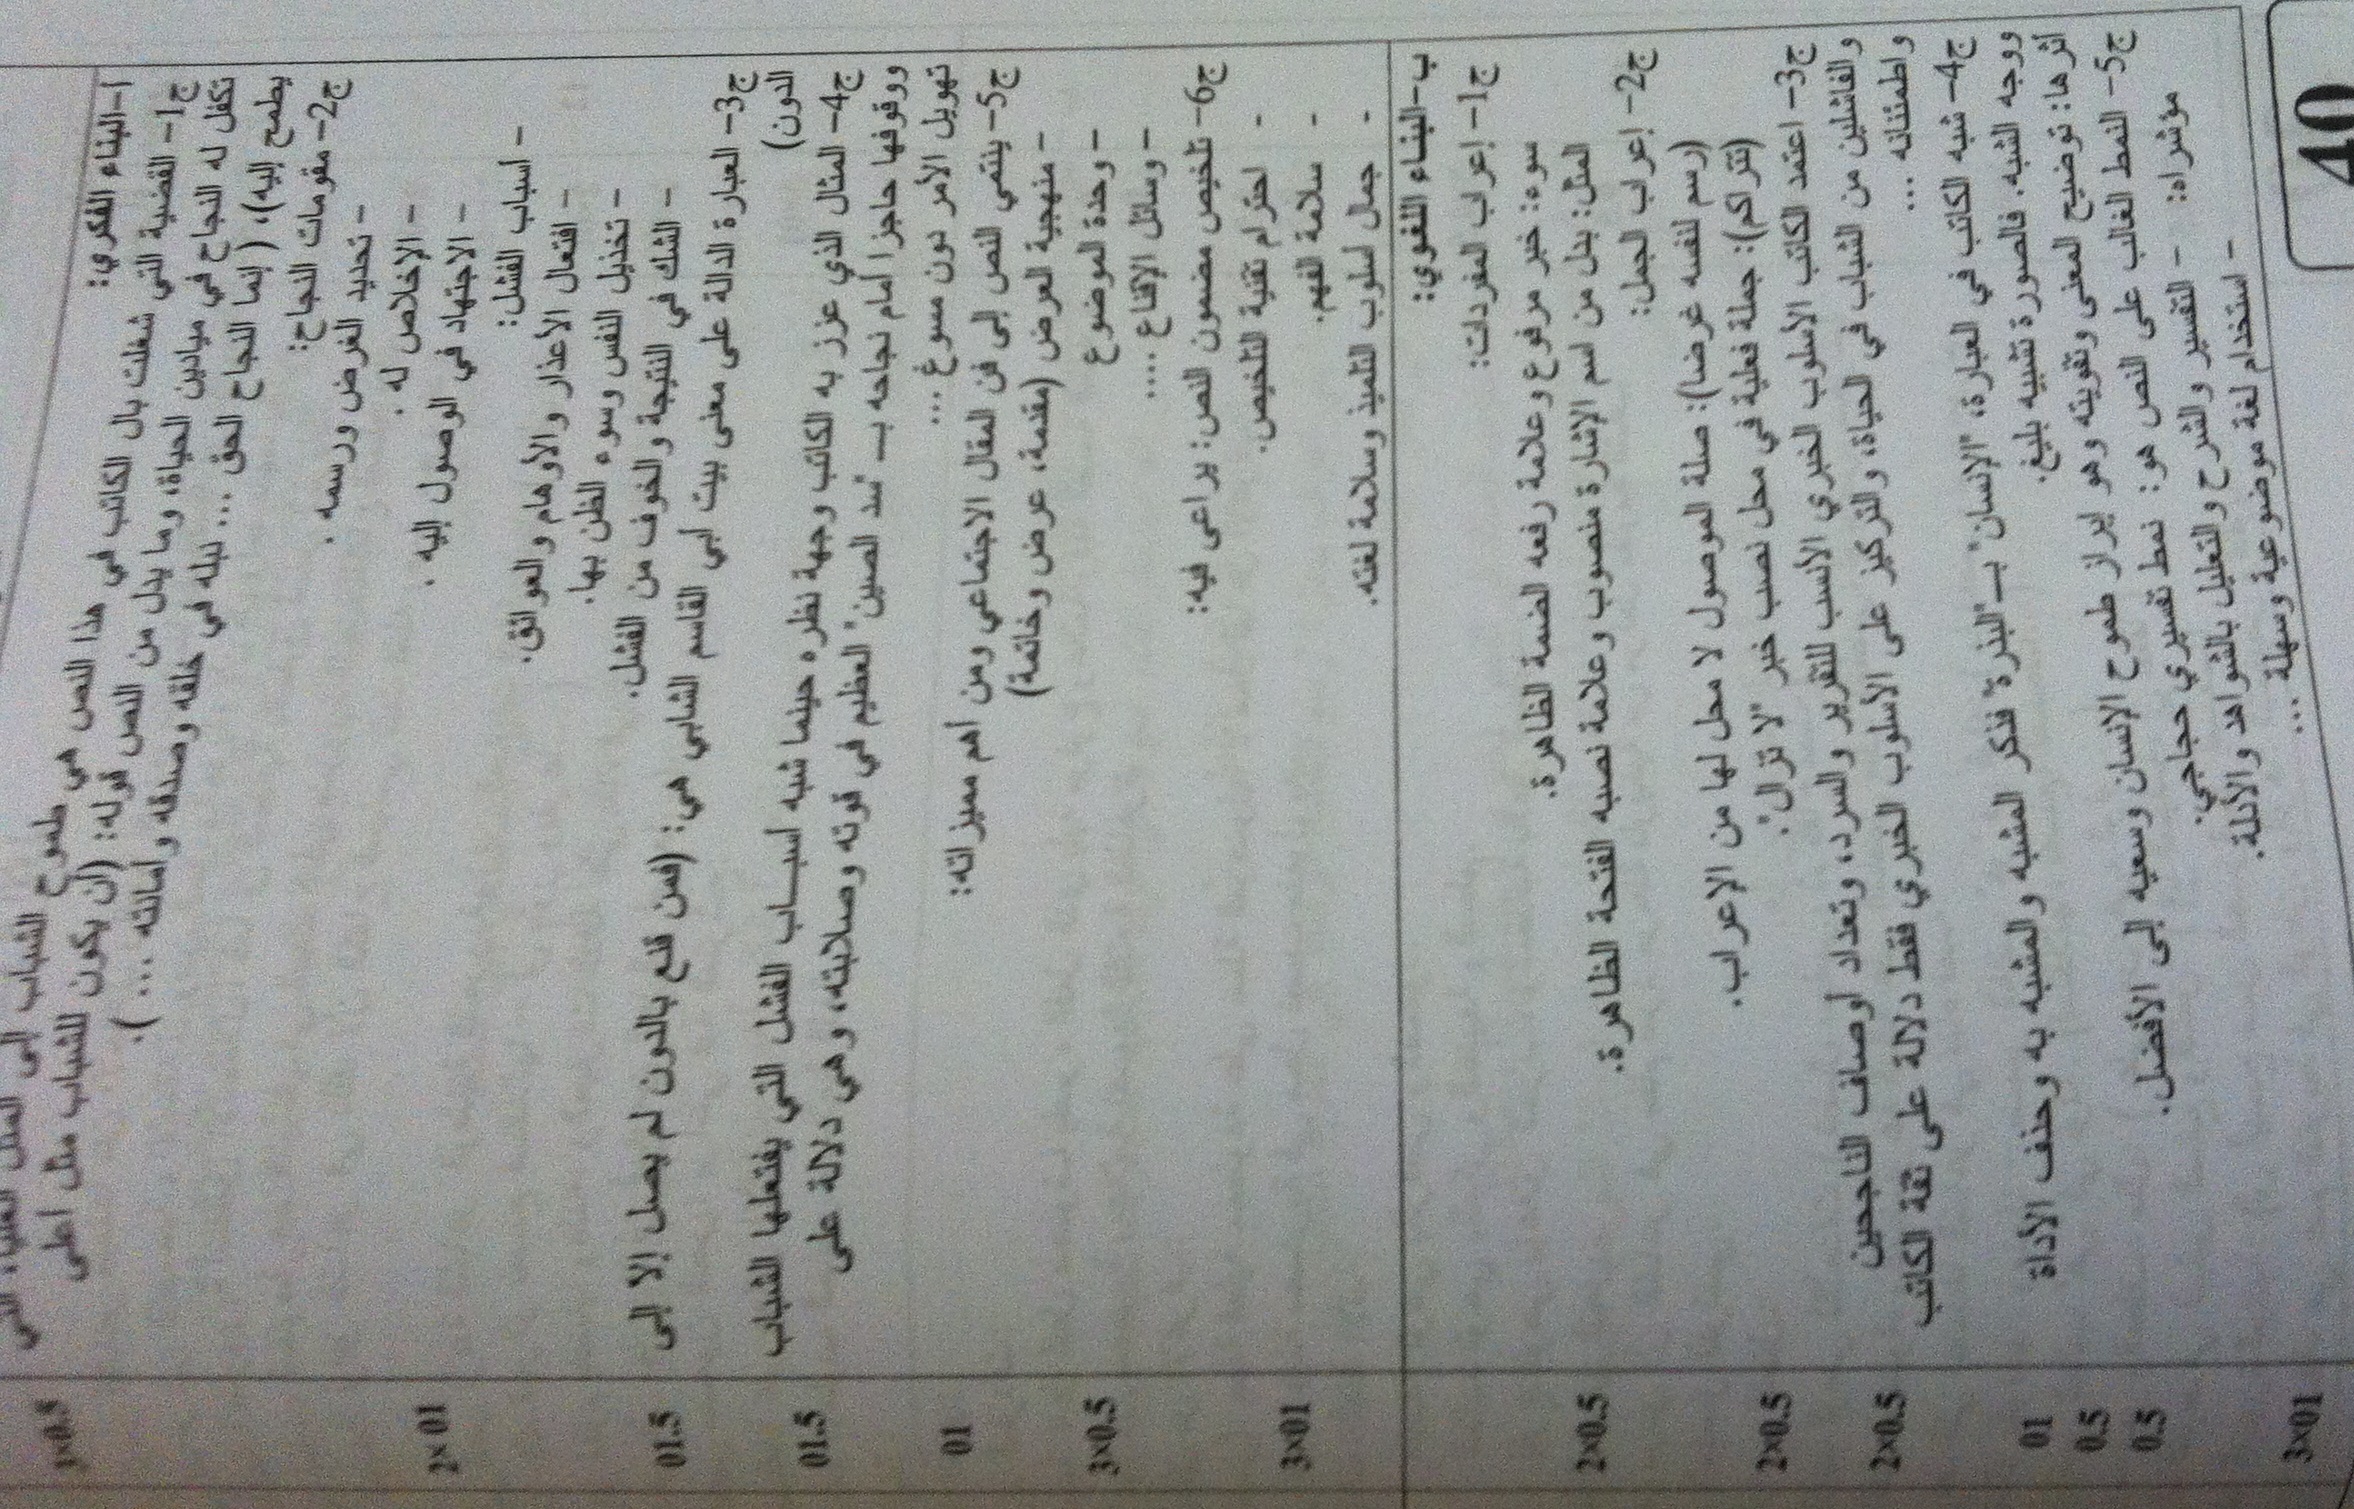 أ-البناء الفكري:
ج1- القضية التي شغلت بال الكاتب في هذا النص هي طموح الشباب إلى المثل العليا، التي
تكفل له النجاح في ميادين الحياة، وما يدل من النص قوله: (أن يكون للشباب مثل أعلى
يطمح إليه)، ( إنما النجاح الحق ... نبله في خلقه وصدقه وأمانته ... ).
3×0.5
ج2- مقومات النجاح:
- تحديد الغرض ورسمه .
- الإخلاص له .
- الاجتهاد في الوصول إليه .
2× 01
- أسباب الفشل:
- افتعال الأعذار والأوهام والعوائق.
- تخذيل النفس وسوء الظن بها.
- الشك في النتيجة والخوف من الفشل.
ج3- العبارة الدالة على معنى بيت أبي القاسم الشابي هي: (فمن قنع بالدون لم يصل إلا إلى
الدون)
01.5
ج4- المثال الذي عزز به الكاتب وجهة نظره حينما شبه أسباب الفشل التي يفتعلها الشباب
ووقوفها حاجزا أمام نجاحه بـ "سد الصين" العظيم في قوته وصلابته، وهي دلالة على
تهويل الأمر دون مسوغ ...
01.5
ج5- ينتمي النص إلى فن المقال الاجتماعي ومن أهم مميزاته:
- منهجية العرض (مقدمة، عرض وخاتمة)
- وحدة الموضوع
- وسائل الإقناع ....
01
3×0.5
ج6- تلخيص مضمون النص: يراعى فيه:
- احترام تقنية التلخيص.
- سلامة الفهم.
- جمال أسلوب التلميذ وسلامة لغته.
3×01
ب-البناء اللغوي:
ج1- إعراب المفردات:
سوء: خبر مرفوع وعلامة رفعه الضمة الظاهرة.
المثل: بدل من اسم الإشارة منصوب وعلامة نصبه الفتحة الظاهرة.
2×0.5
ج2- إعراب الجمل:
(رسم لنفسه غرضا): صلة الموصول لا محل لها من الإعراب.
(تتراكم): جملة فعلية في محل نصب خبر "لا تزال".
2×0.5
ج3- اعتمد الكاتب الأسلوب الخبري الأنسب للتقرير والسرد، وتعداد أوصاف الناجحين
والفاشلين من الشباب في الحياة، والتركيز على الأسلوب الخبري فقط دلالة على ثقة الكاتب
واطمئنانه ...
2×0.5
ج4- شبه الكاتب في العبارة، "الإنسان" بـ"البذرة" فذكر المشبه والمشبه به وحذف الأداة
ووجه الشبه. فالصورة تشبيه بليغ.
أثرها: توضيح المعنى وتقويته وهو إبراز طموح الإنسان وسعيه إلى الأفضل.
01
0.5
ج5- النمط الغالب على النص هو: نمط تفسيري حجاجي:
مؤشراه: - التفسير والشرح والتعليل بالشواهد والأدلة.
- استخدام لغة موضوعية وسهلة ...
0.5
3×01
40